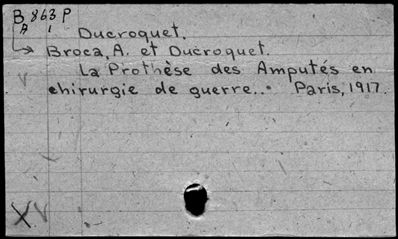 B 863 P
A 1
Ducroquet.
Broca, A. et Ducroquet.
La Prothèse des Amputés en
chirurgie de guerre... Paris, 1917.